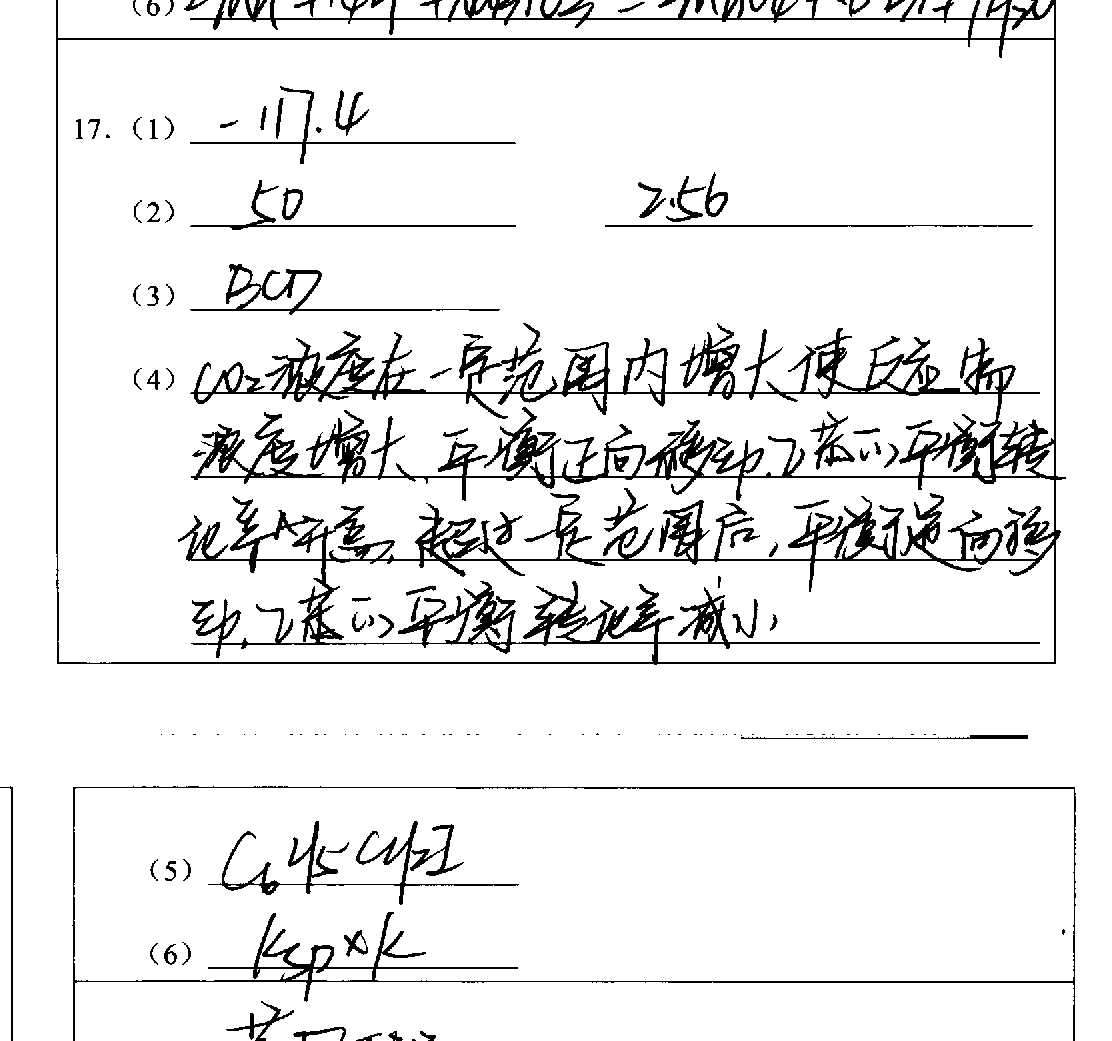 (6)
17. (1) -117.4
(2) 50 2.56
(3) BCD
(4) CO₂浓度在一定范围内增大使反应物
浓度增大,平衡正向移动,乙苯的平衡转
化率升高,超过一定范围后,平衡逆向移
动,乙苯的平衡转化率减小
(5) C₆H₅CH₂I
(6) Ksp×K